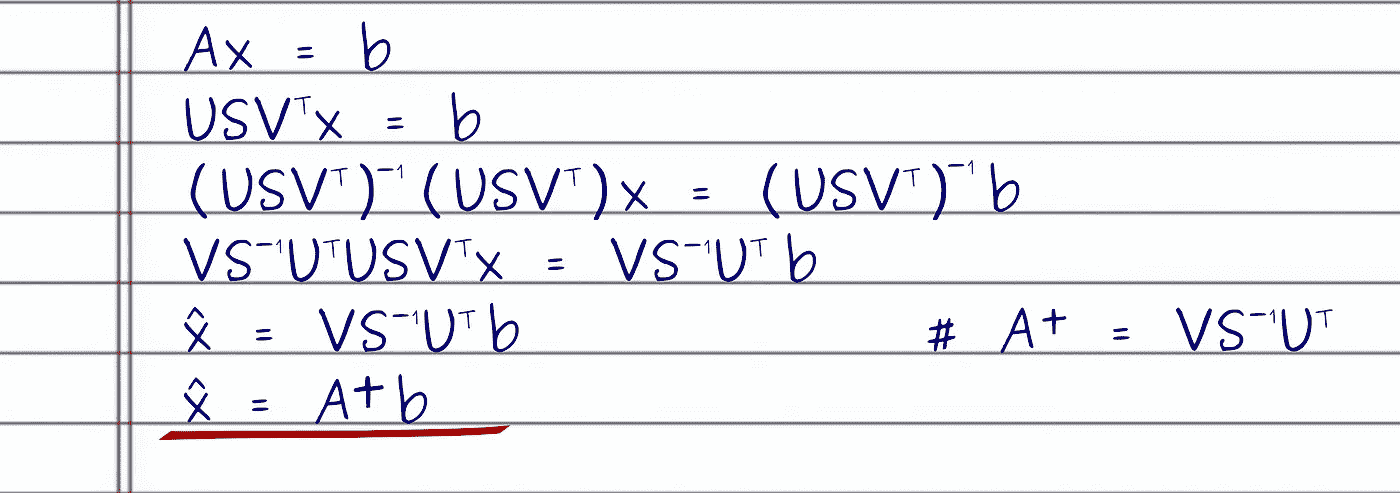 Ax = b
USVᵀx = b
(USVᵀ)⁻¹(USVᵀ)x = (USVᵀ)⁻¹b
VS⁻¹UᵀUSVᵀx = VS⁻¹Uᵀb
x̂ = VS⁻¹Uᵀb # A⁺ = VS⁻¹Uᵀ
x̂ = A⁺b